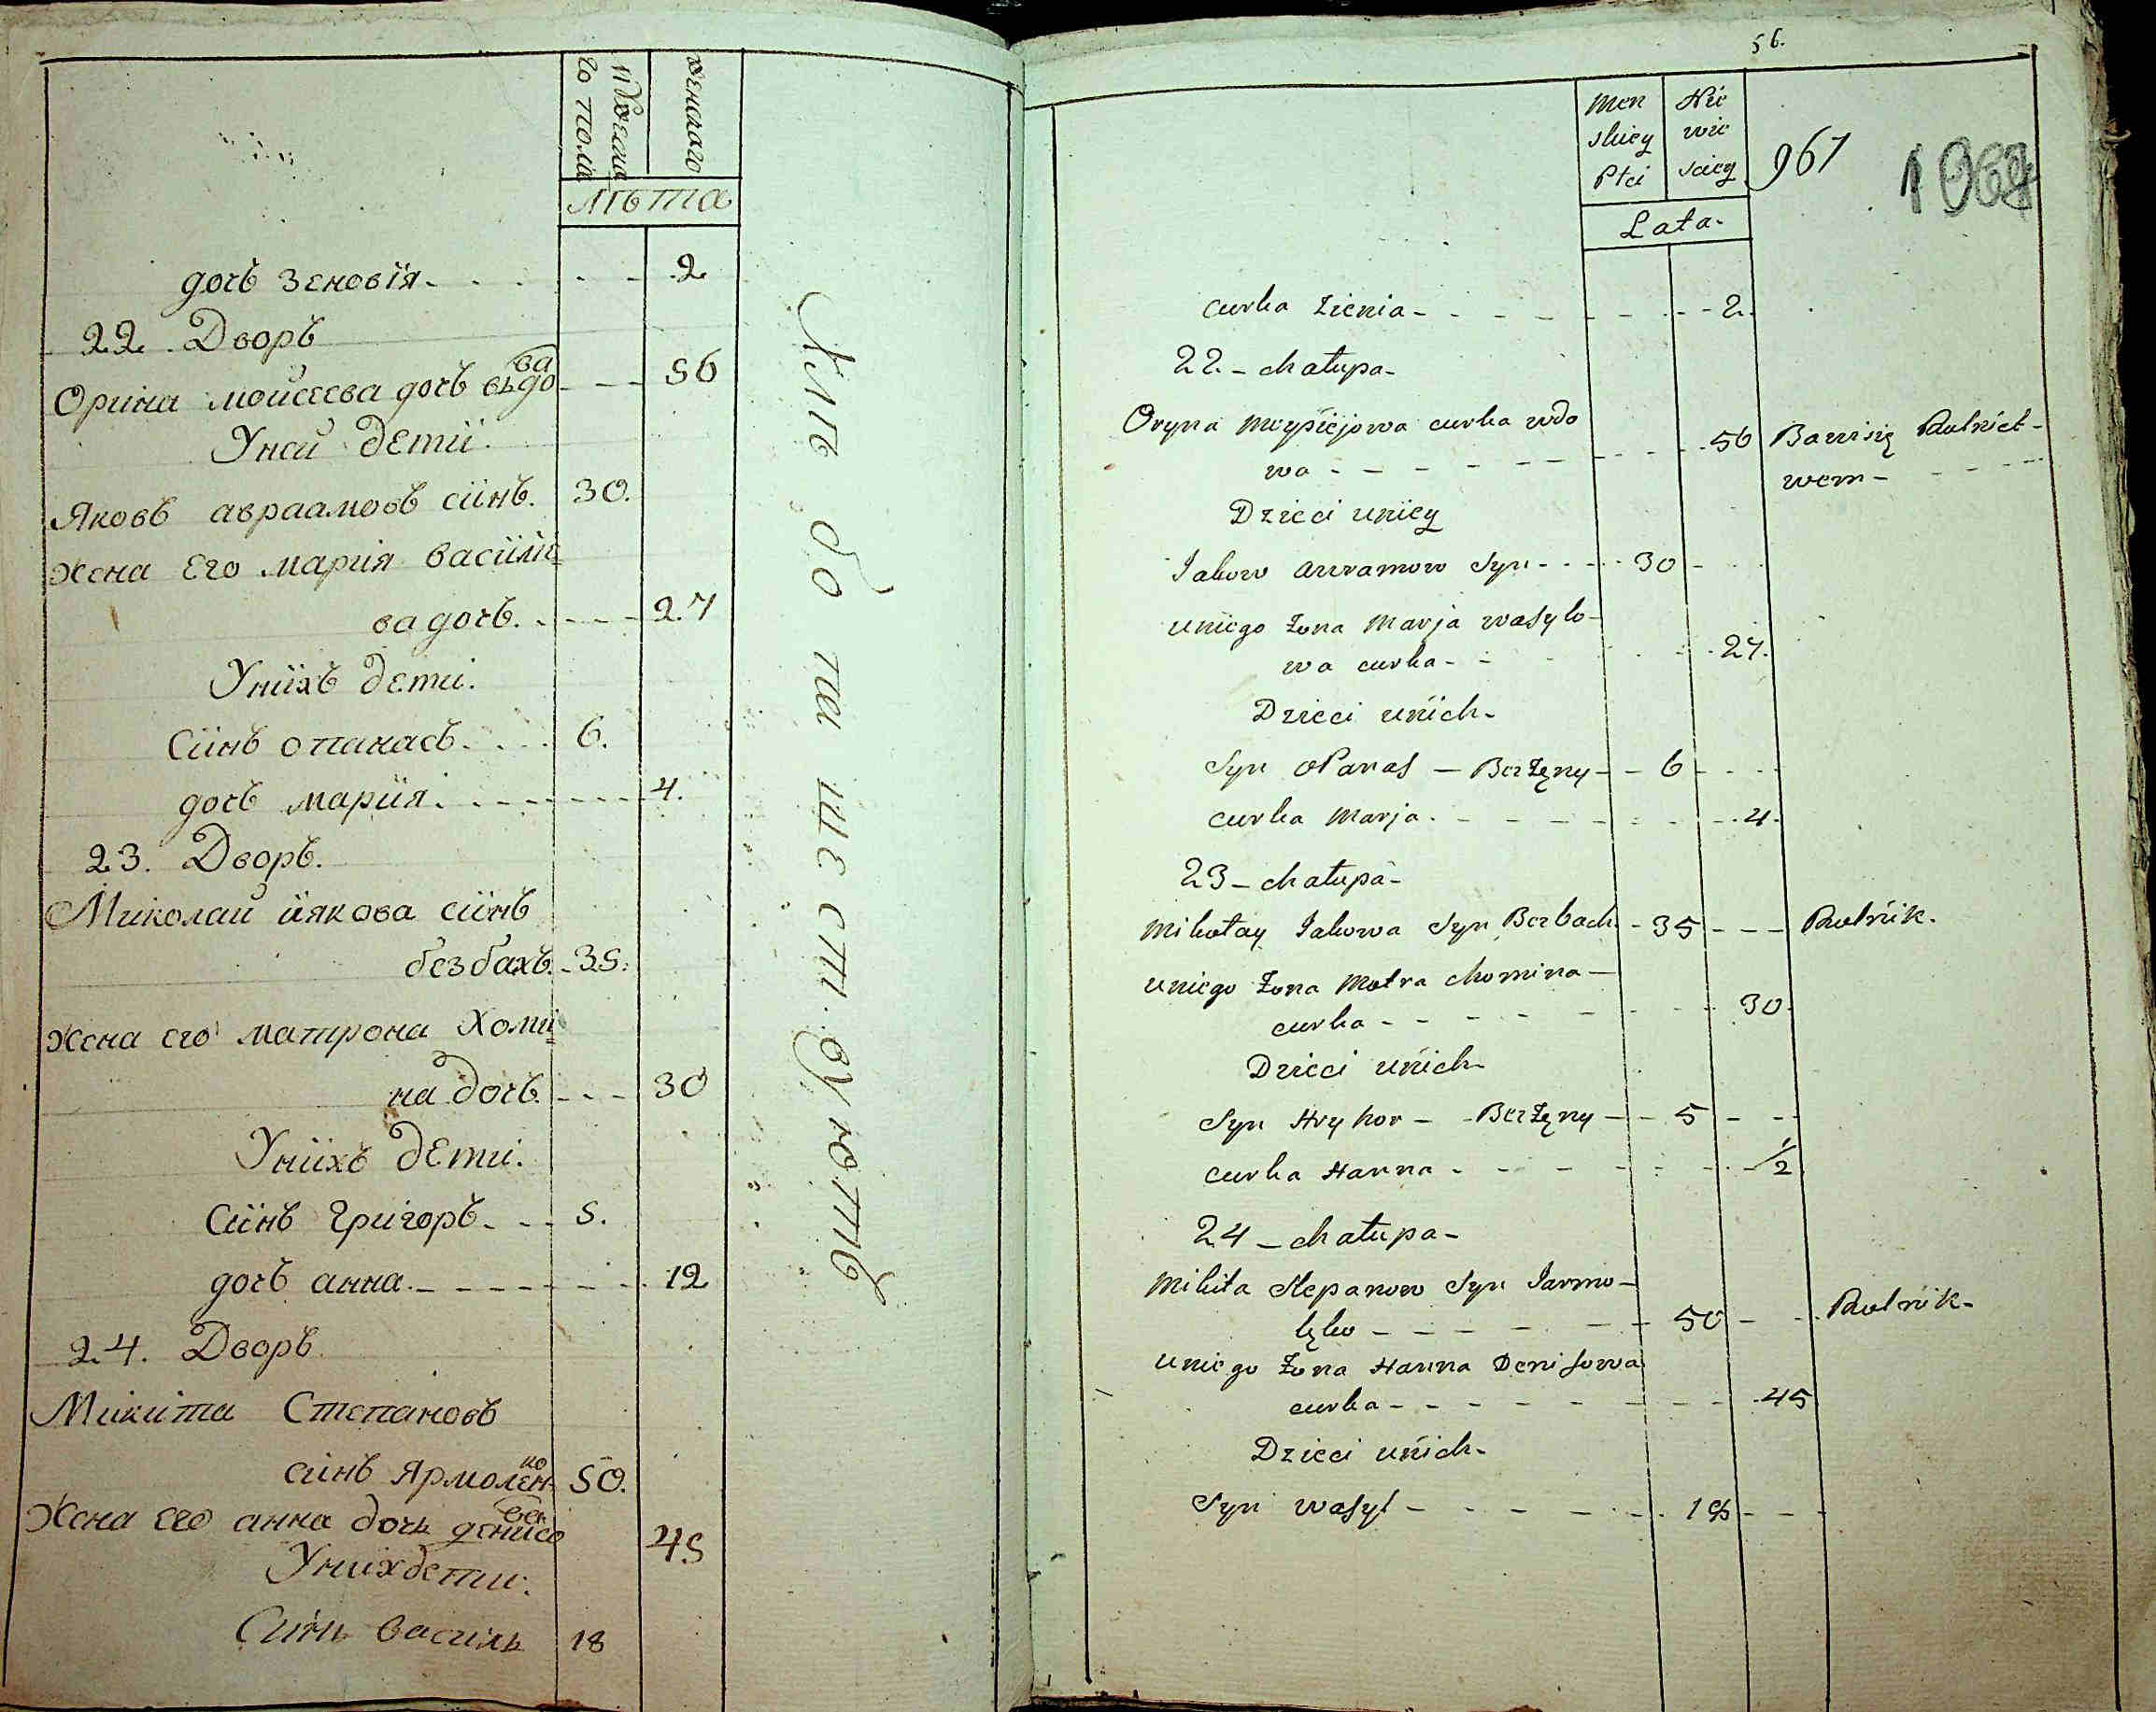 мужеска
го пола
женскаго
лѣта
дочъ зеновїя - - - 2
22. Дворъ
Орина моисеева дочъ вьдова - - - 56
Унеи дети.
Яковъ авраамовъ сiинъ. 30.
жена Его мария васили=
ва дочъ. - - - - 27
Унiихъ дети.
Сiинъ опанасъ. - - - 6.
дочъ марiия. - - - - 4.
23. Дворъ.
Миколаи iякова сiинъ
безбахъ. - 35.
жена его матрона Хоми=
на дочъ. - - - 30
Унiихъ дети.
Сiинъ григоръ. - - 5.
дочъ анна. - - - - 12
24. Дворъ
Микита Степановъ
сiинъ Ярмоленко 50.
Жена его анна дочь денисова 45
Униіх дети.
Синь василь 18
бо па ше ст вують
56.
Men
skiey
Płci
Nie
wie
sciey
967
Lata.
curka Zienia - - - - - 2.
22 - chałupa -
Oryna Moysiejowa curka wdo
wa - - - - - - 56 Bawisię Rolnict-
wem -
Dzieci uniey
Jakow Awramow Syn - - - 30 -
uniego Żona Marja Wasylo-
wa curka - - 27.
Dzieci unich -
Syn oPanas - Berżeny - - 6 - - -
curka Marja. - - - - - 4.
23 - chałupa -
Mikołay Jakowa Syn Bezbach - 35 - - - Rolnik.
uniego Żona Motra Chomina -
curka - - - - - - 30.
Dzieci unich -
Syn Hryhor - - Berżeny - - 5 - - -
curka Hanna - - - - - 1/2
24 - chałupa -
Mikita Stepanow Syn Jarmo-
- - - - - 50 - - Rolnik -
uniego Żona Hanna Denisowa
curka - - - - - - 45
Dzieci unich -
Syn Wasyl - - - - - 18 - - -